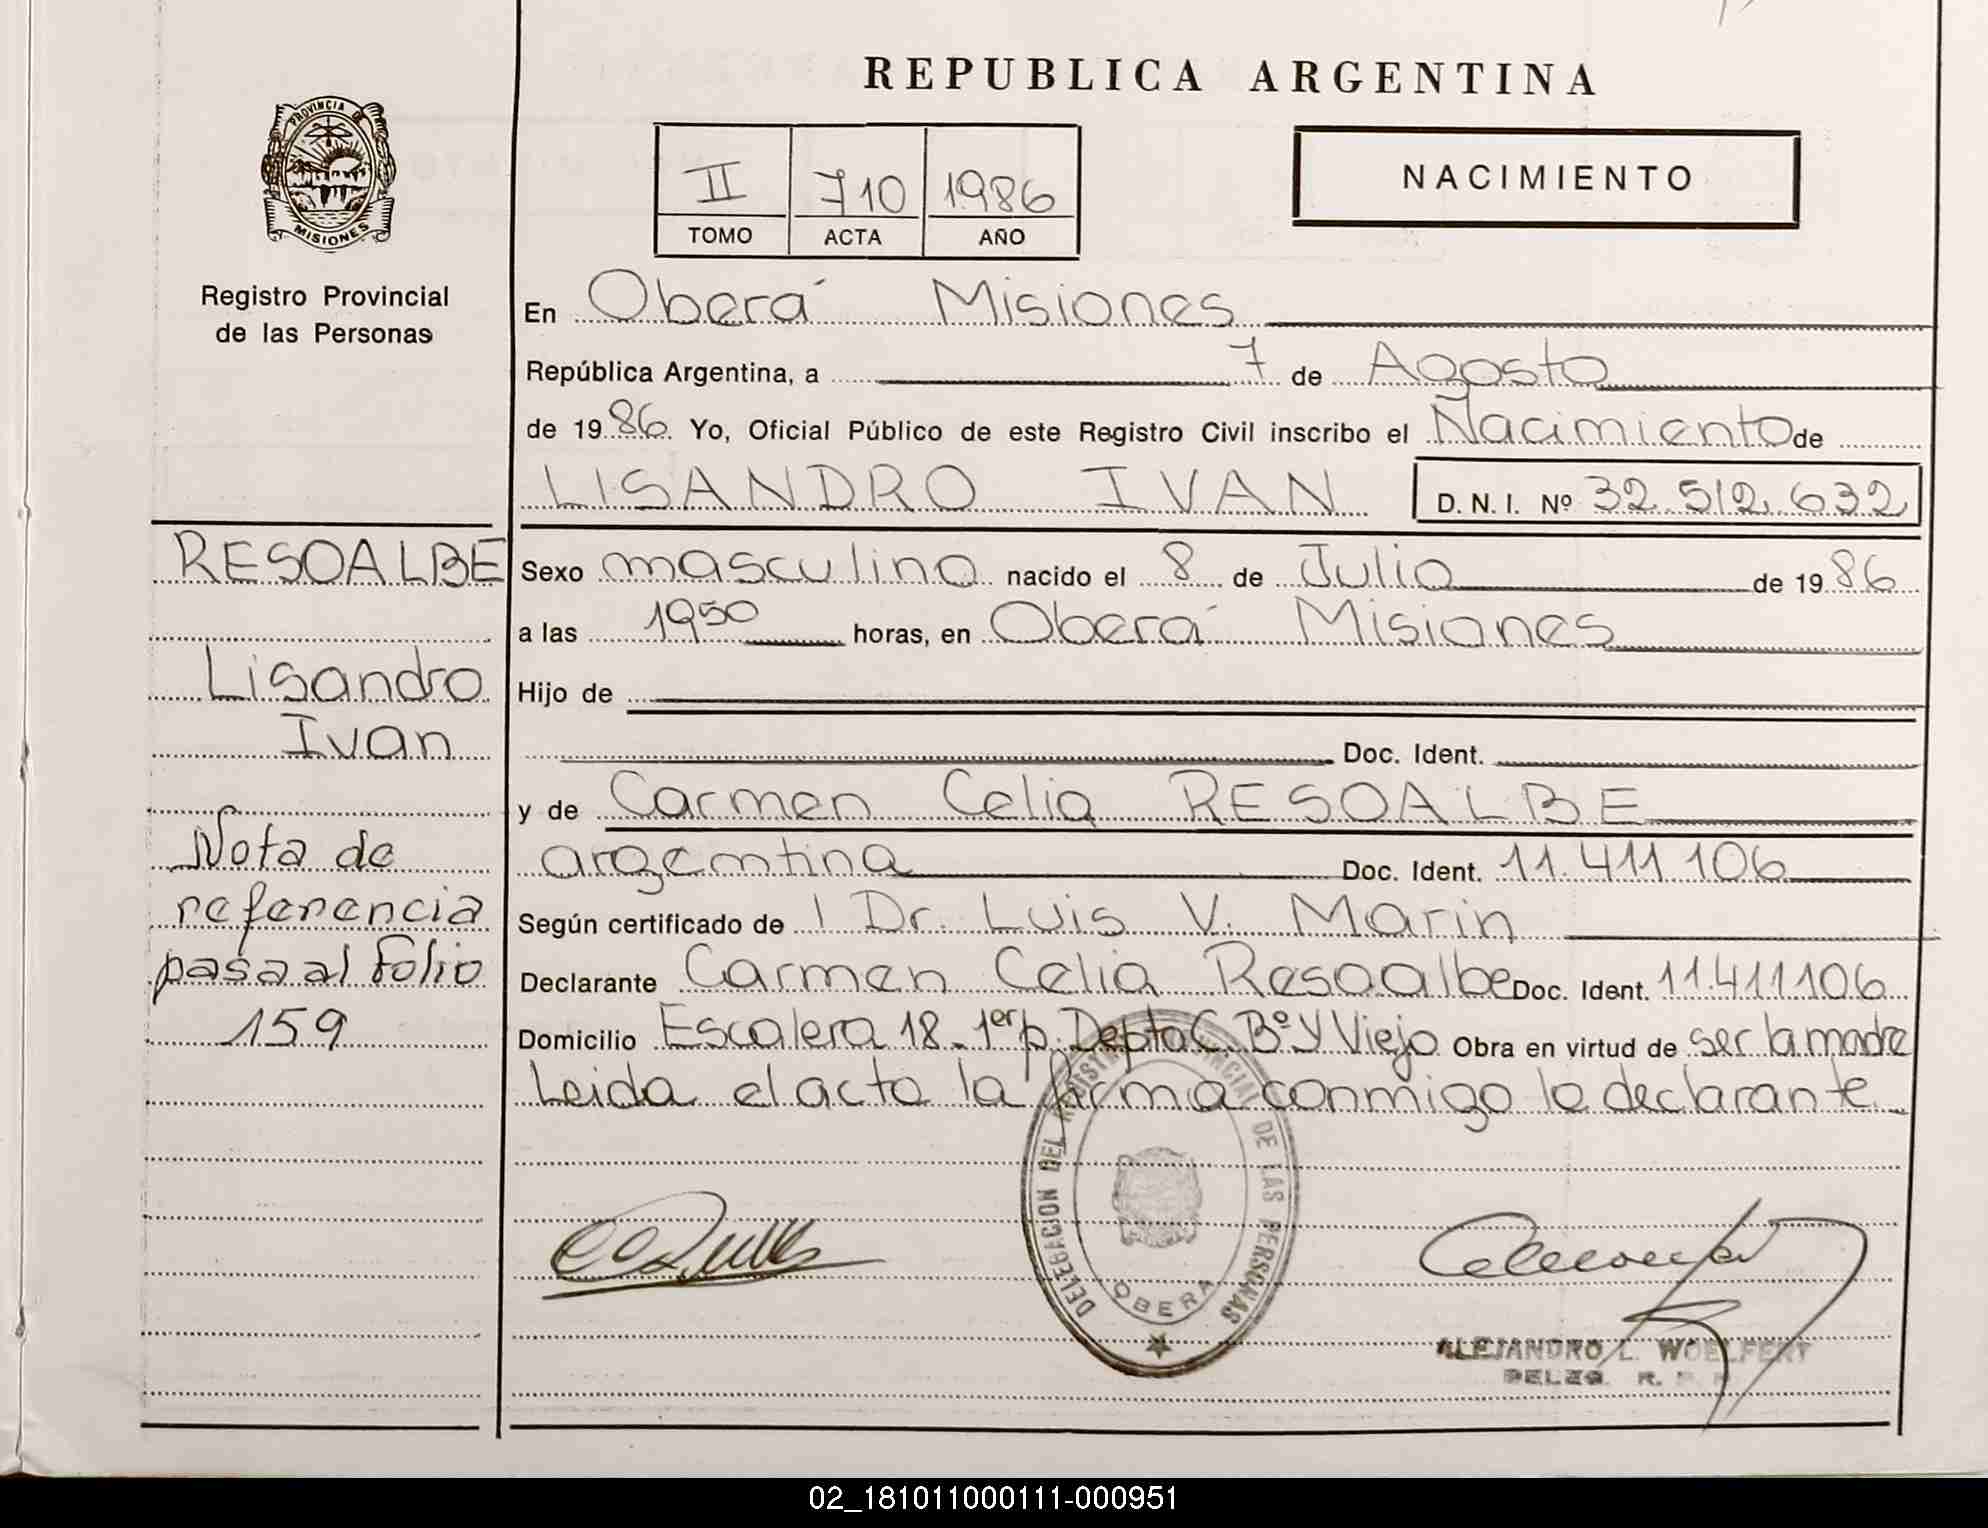 REPUBLICA ARGENTINA
PROVINCIA DE
MISIONES
Registro Provincial
de las Personas
II 710 1986
TOMO ACTA AÑO
NACIMIENTO
En Oberá Misiones
República Argentina, a 7 de Agosto
de 1986 Yo, Oficial Público de este Registro Civil inscribo el Nacimiento de
LISANDRO IVAN D. N. I. Nº 32.512.632
RESOALBE
Lisandro
Ivan
Nota de
referencia
pasa al folio
159
Sexo masculino nacido el 8 de Julio de 1986
a las 1950 horas, en Oberá Misiones
Hijo de
Doc. Ident.
y de Carmen Celia RESOALBE
argentina Doc. Ident. 11.411.106
Según certificado de Dr. Luis V. Marin
Declarante Carmen Celia Resoalbe Doc. Ident. 11.411.106
Domicilio Escalera 18 - 1er p. Depto C. Bº Y Viejo Obra en virtud de ser la madre
Leida el acta la firma conmigo la declarante
DELEGACION DEL REGISTRO PROVINCIAL DE LAS PERSONAS
OBERA
ALEJANDRO L. WOELFERT
DELEG. R. P.
02_181011000111-000951